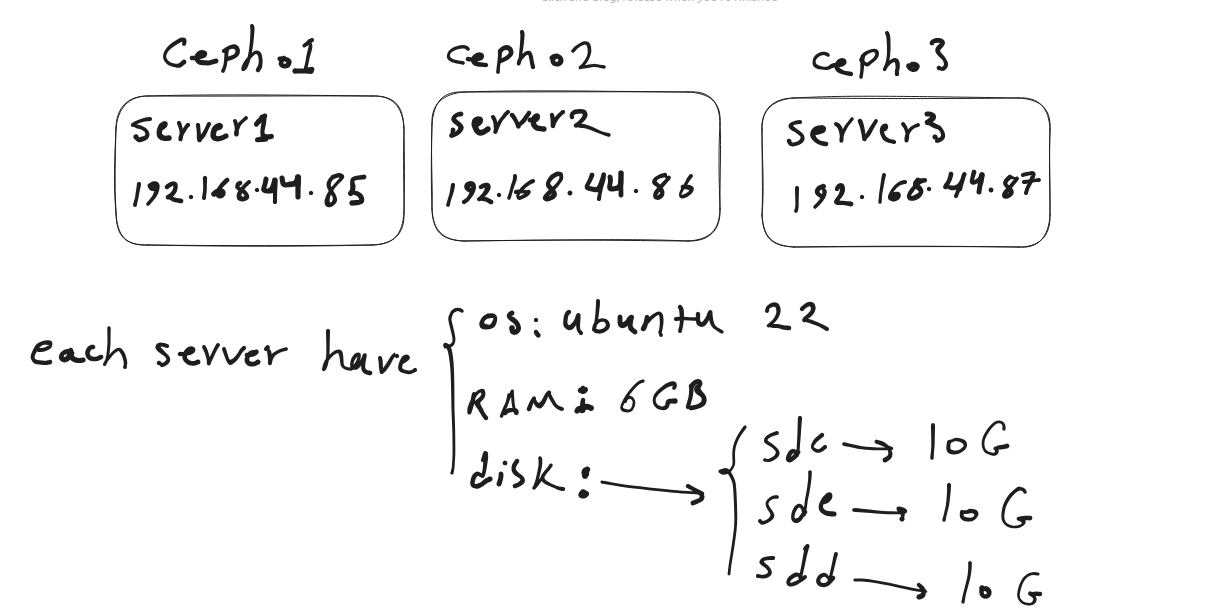 ceph.1
ceph.2
ceph.3
server1
192.168.44.85
server2
192.168.44.86
server3
192.168.44.87
each server have
os: ubuntu 22
RAM: 6GB
disk:
sdc → 10 G
sde → 10 G
sdd → 10 G